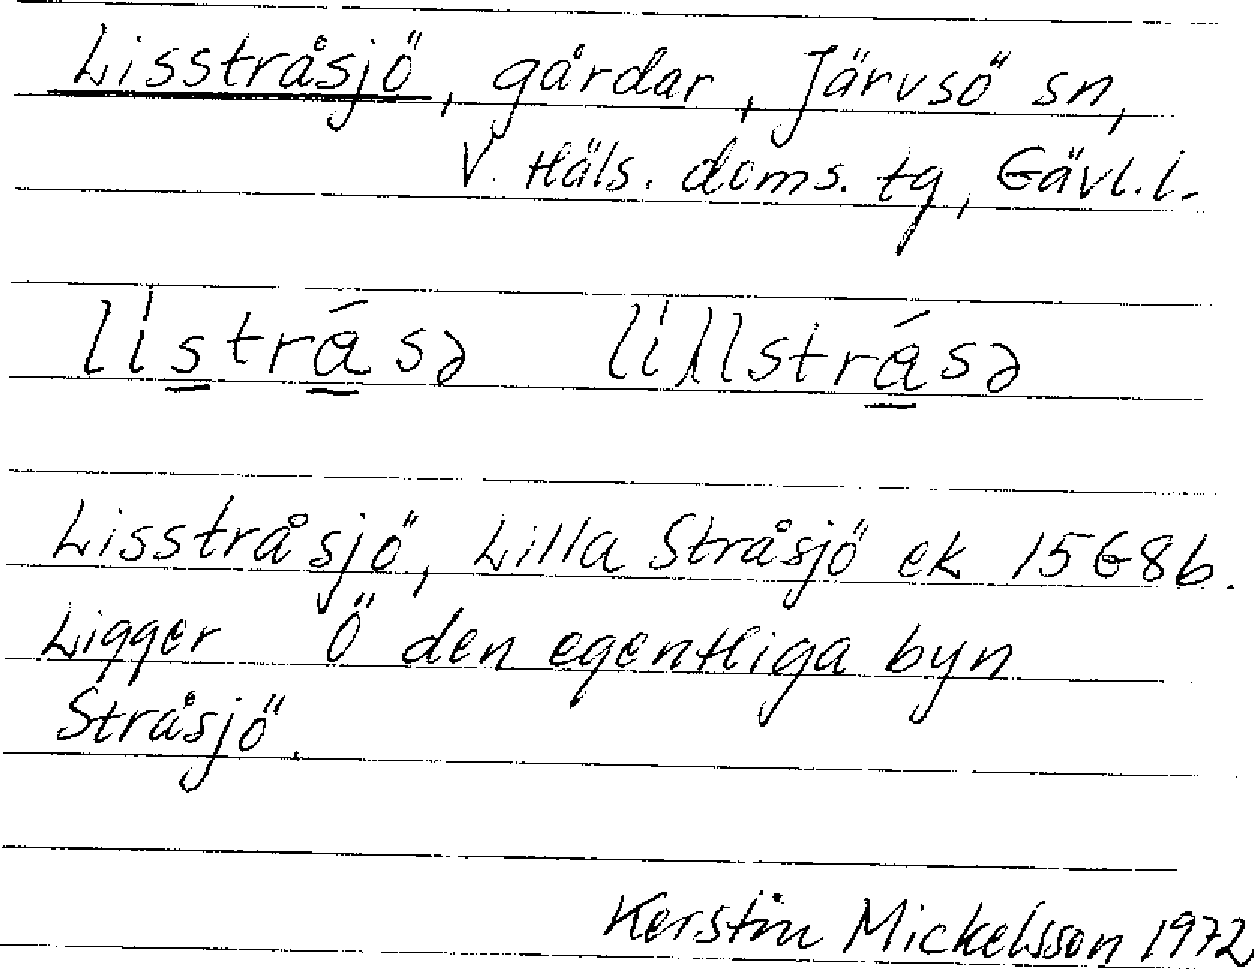 Lisstråsjö, gårdar, Järvsö sn,
V. Häls. doms. tg, Gävl.l.
lìstrásə lìllstrásə
Lisstråsjö, Lilla Stråsjö ek 15G8b.
Ligger Ö den egentliga byn
Stråsjö.
Kerstin Mickelsson 1972